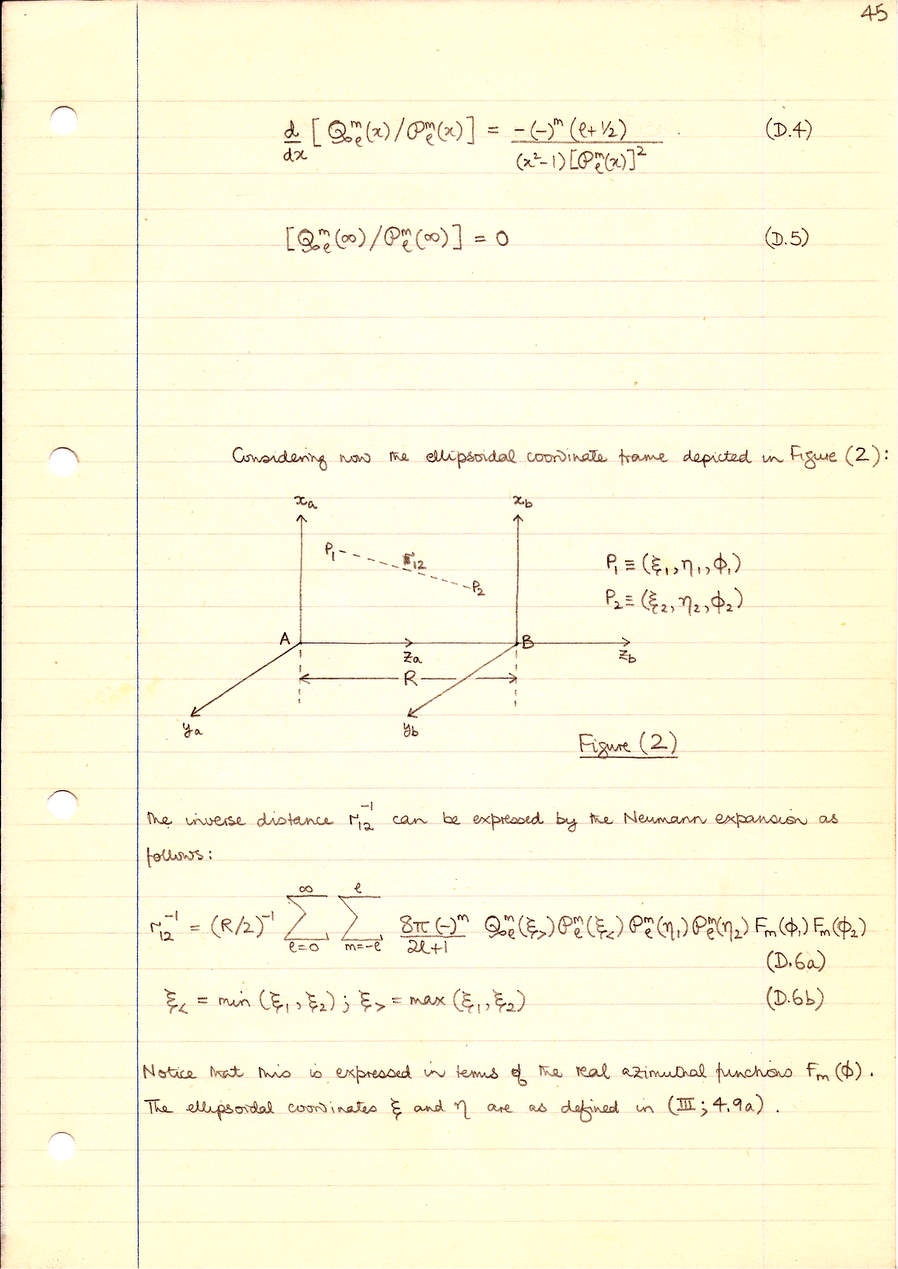 45
d/dx [ 𝒬ₗᵐ(x)/𝒫ₗᵐ(x) ] = -(-)ᵐ (ℓ+1/2) / (x²-1)[𝒫ₗᵐ(x)]² . (D.4)
[𝒬ₗᵐ(∞)/𝒫ₗᵐ(∞)] = 0 (D.5)
Considering now the ellipsoidal coordinate frame depicted in Figure (2):
xₐ x_b
P₁ r₁₂ P₂
P₁ ≡ (ξ₁, η₁, φ₁)
P₂ ≡ (ξ₂, η₂, φ₂)
A zₐ B z_b
R
yₐ y_b
Figure (2)
The inverse distance r₁₂⁻¹ can be expressed by the Neumann expansion as
follows:
r₁₂⁻¹ = (R/2)⁻¹ ∑_{ℓ=0}^{∞} ∑_{m=-ℓ}^{ℓ} 8π(-)ᵐ / 2ℓ+1 𝒬ₗᵐ(ξ_>) 𝒫ₗᵐ(ξ_<) 𝒫ₗᵐ(η₁) 𝒫ₗᵐ(η₂) Fₘ(φ₁) Fₘ(φ₂)
(D.6a)
ξ_< = min (ξ₁, ξ₂) ; ξ_> = max (ξ₁, ξ₂) (D.6b)
Notice that this is expressed in terms of the real azimuthal functions Fₘ(φ).
The ellipsoidal coordinates ξ and η are as defined in (III; 4.9a).